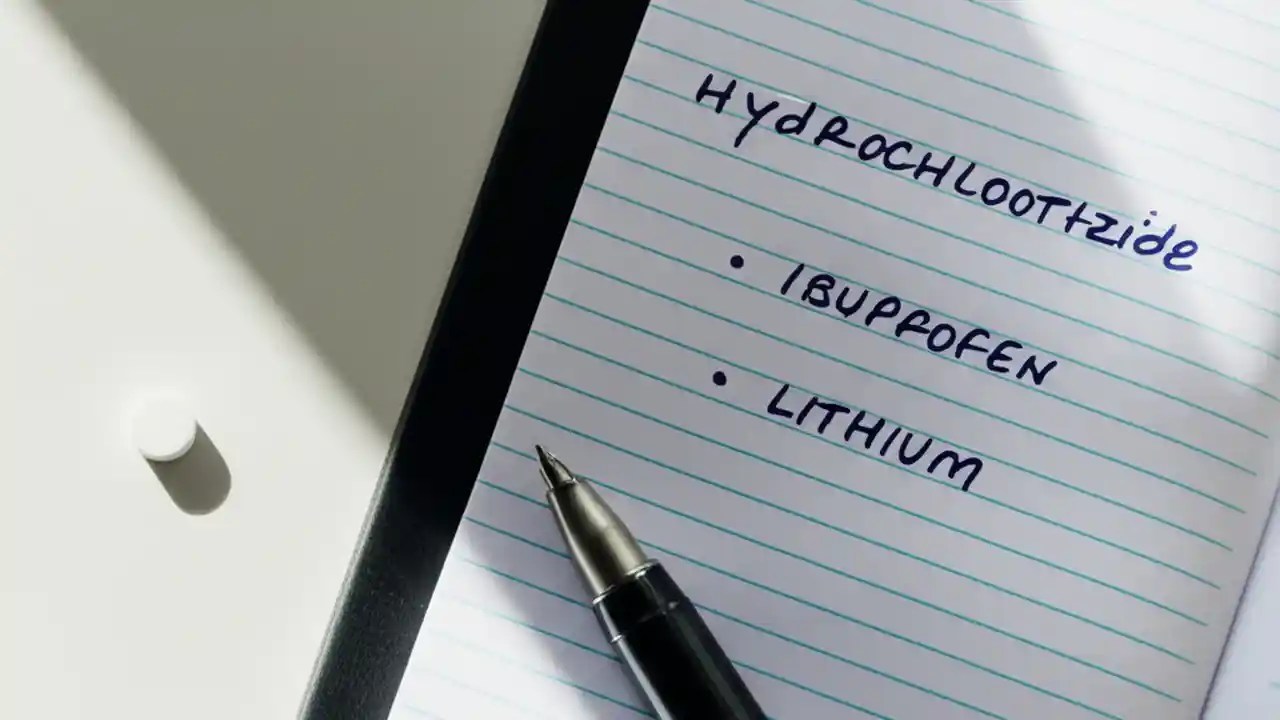 HydROCHLOOTtzide
• IBUPROFEN
• LITHIUM